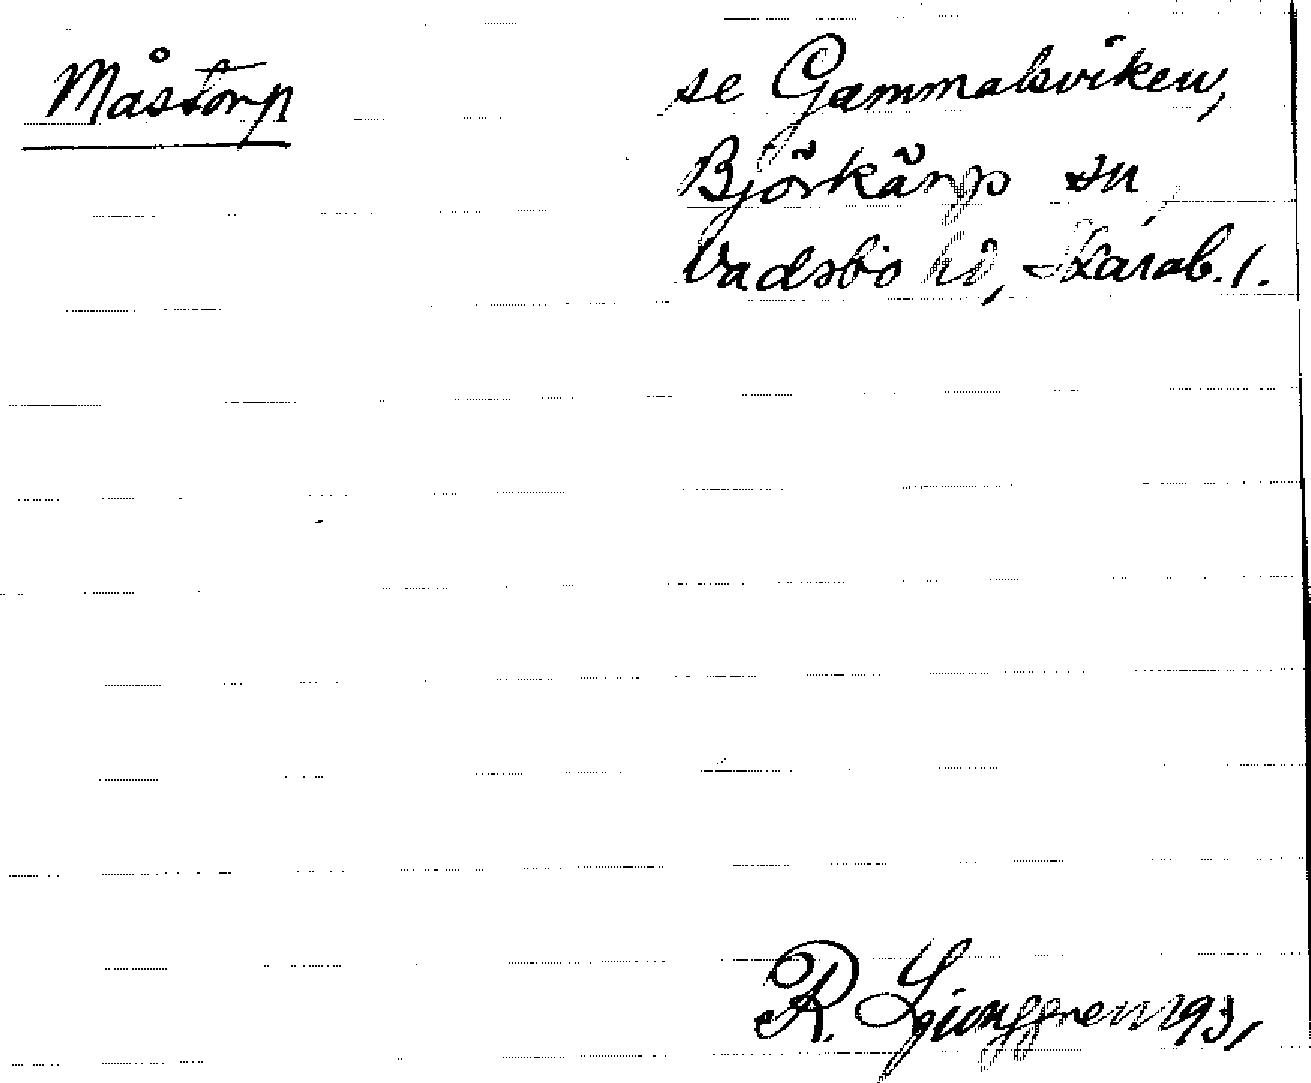 Måstorp
se Gammalsviken,
Björkärp sn,
Vadsbo hd, Skarab. l.
R. Ljunggren 1931